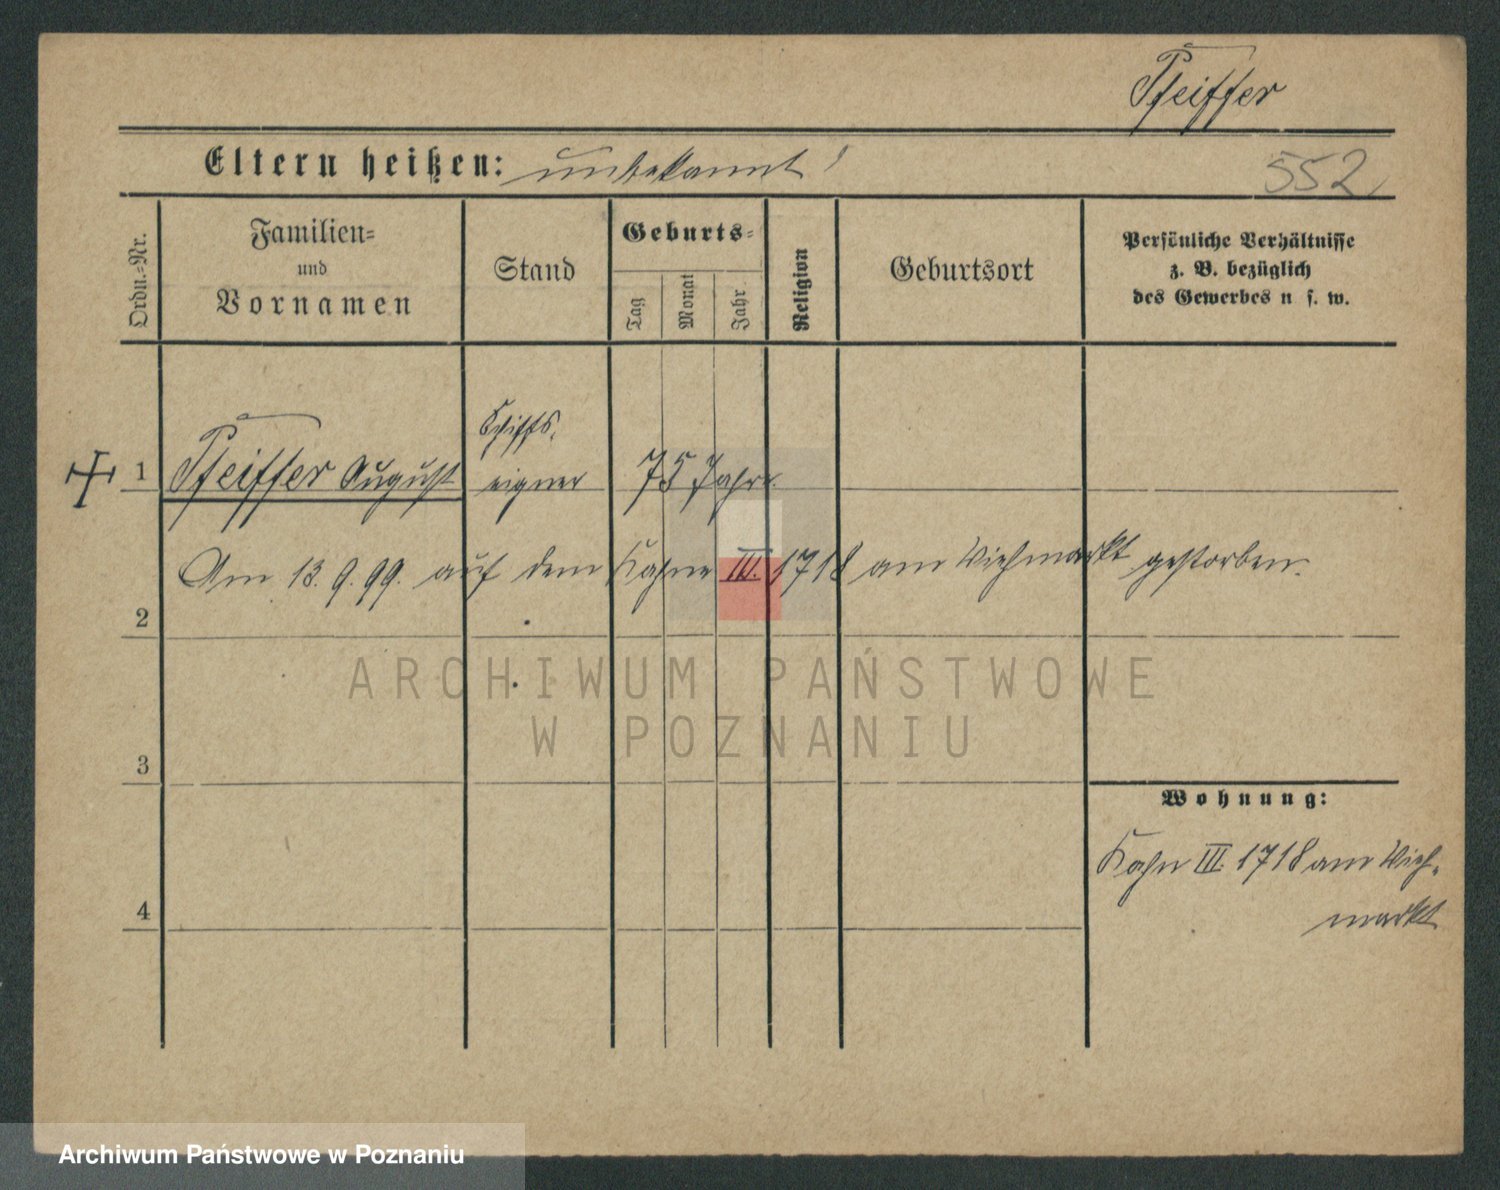 Pfeiffer
Eltern heißen: unbekannt!
552
Ordn.=Nr.
Familien=
und
Vornamen
Stand
Geburts=
Tag
Monat
Jahr
Religion
Geburtsort
Persönliche Verhältnisse
z. B. bezüglich
des Gewerbes u s. w.
1
Pfeiffer August
Schiffs,
eigner
75 Jahre
Am 13. 9. 99. auf dem Kahne III. 1718 am Viehmarkt gestorben.
2
ARCHIWUM PAŃSTWOWE
W POZNANIU
3
Wohnung:
Kahn III. 1718 am Vieh-
markt
4
Archiwum Państwowe w Poznaniu